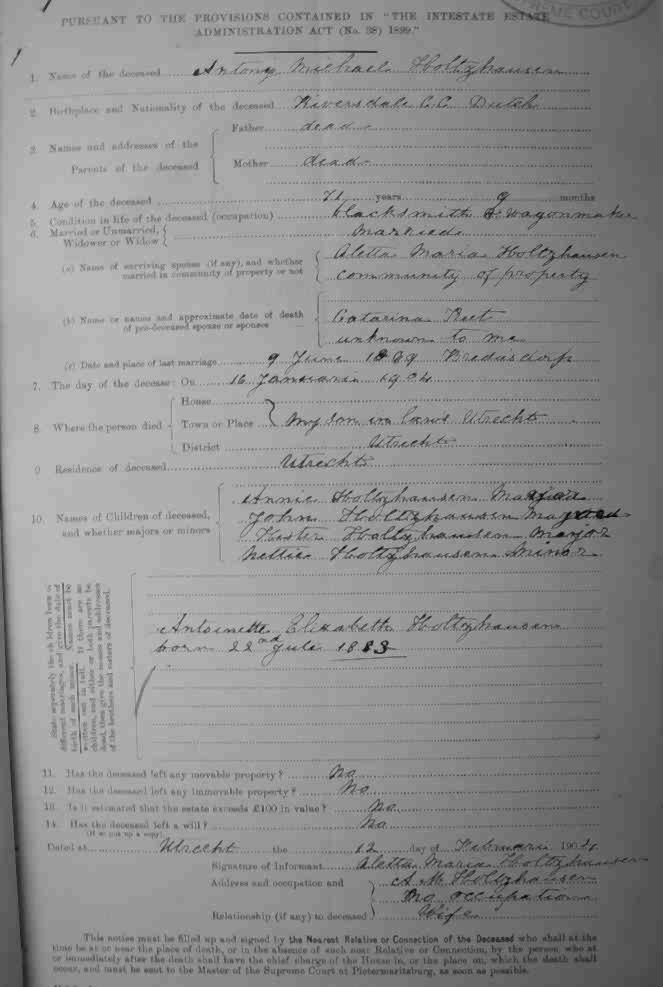 PREME COURT
PURSUANT TO THE PROVISIONS CONTAINED IN "THE INTESTATE ESTATE
ADMINISTRATION ACT (No. 38) 1899."
1. Name of the deceased Antony Michael Holtzhausen
2. Birthplace and Nationality of the deceased Riversdale C.C. Dutch
3. Names and addresses of the Parents of the deceased
Father dead
Mother dead
4. Age of the deceased 71 years 9 months
5. Condition in life of the deceased (occupation) blacksmith & wagonmaker
6. Married or Unmarried, Widower or Widow married
(a) Name of surviving spouse (if any), and whether married in community of property or not
Aletta Maria Holtzhausen
community of property
(b) Name or names and approximate date of death of pre-deceased spouse or spouses
Catarina
unknown to me
(c) Date and place of last marriage 9 June Bredasdorp
7. The day of the decease: On 16 Januarie 1904
8 Where the person died
House
Town or Place my son in laws Utrecht
District Utrecht
9 Residence of deceased Utrecht
10. Names of Children of deceased, and whether majors or minors
Annie Holtzhausen
John Holtzhausen
Hester Holtzhausen Marjor
Nettie Holtzhausen Minor
State separately the children born of
different marriages, and give the date of
birth of each minor. Names must be
written out in full. If there are no
children, and either or both parents be
dead, then give the names and addresses
of the brothers and sisters of deceased.
Antoinette Elizabeth Holtzhausen
born 22nd Juli 1883
11. Has the deceased left any movable property? No
12. Has the deceased left any immovable property? No
13. Is it estimated that the estate exceeds £100 in value? No
14. Has the deceased left a will? No
(If so put up a copy).
Dated at Utrecht the 12 day of Februarie 1904
Signature of Informant Aletta Maria Holtzhausen
Address and occupation and A M Holtzhausen
no occupation
Relationship (if any) to deceased Wife
This notice must be filled up and signed by the Nearest Relative or Connection of the Deceased who shall at the
time be at or near the place of death, or in the absence of such near Relative or Connection, by the person, who at
or immediately after the death shall have the chief charge of the House in, or the place on, which the death shall
occur, and must be sent to the Master of the Supreme Court at Pietermaritzburg, as soon as possible.